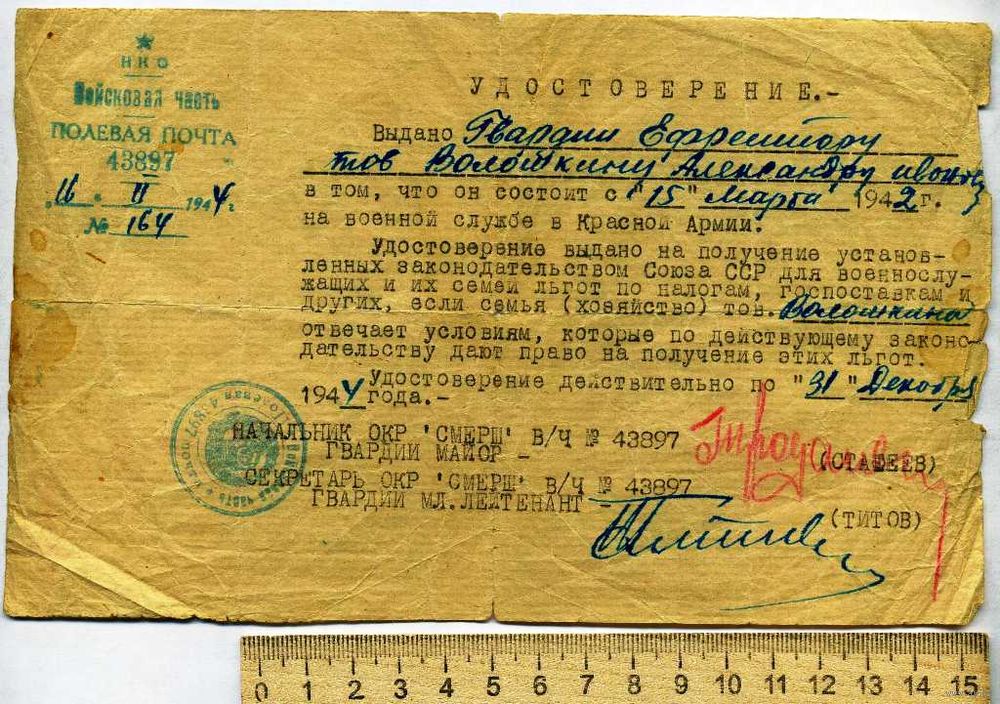 НКО
Войсковая часть
ПОЛЕВАЯ ПОЧТА
43897
"16" II 1944г
№ 164
УДОСТОВЕРЕНИЕ.-
Выдано Гвардии Ефрейтору
тов Волошкину Александру
в том, что он состоит с "15" Марта 1942г.
на военной службе в Красной Армии.
Удостоверение выдано на получение установ-
ленных законодательством Союза ССР для военнослу-
жащих и их семей льгот по налогам, госпоставкам и
других, если семья (хозяйство) тов. Волошкина
отвечает условиям, которые по действующему законо-
дательству дают право на получение этих льгот.
Удостоверение действительно по "31" Декабря
1944 года.-
НАЧАЛЬНИК ОКР 'СМЕРШ' В/Ч № 43897
ГВАРДИИ МАЙОР -
(СТАШЕЕВ)
СЕКРЕТАРЬ ОКР 'СМЕРШ' В/Ч № 43897
ГВАРДИИ МЛ.ЛЕЙТЕНАНТ -
(ТИТОВ)
0 1 2 3 4 5 6 7 8 9 10 11 12 13 14 15